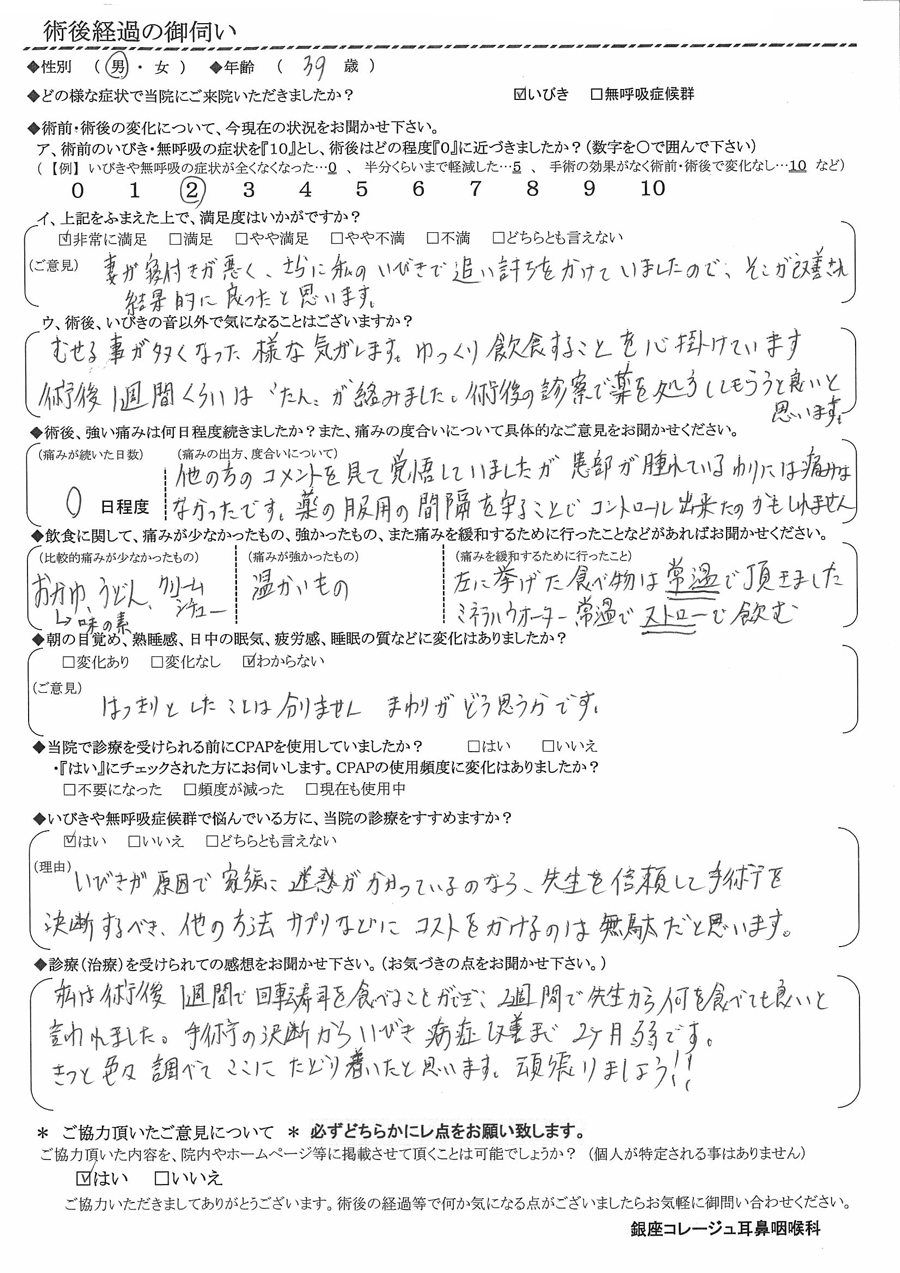 術後経過の御伺い
◆性別 （ 男 ・ 女 ） ◆年齢 （ 39 歳 ）
◆どの様な症状で当院にご来院いただきましたか？ ☑いびき □無呼吸症候群
◆術前・術後の変化について、今現在の状況をお聞かせ下さい。
ア、術前のいびき・無呼吸の症状を『10』とし、術後はどの程度『0』に近づきましたか？（数字を○で囲んで下さい）
（【例】 いびきや無呼吸の症状が全くなくなった…0 、 半分くらいまで軽減した…5 、 手術の効果がなく術前・術後で変化なし…10 など）
0 1 2 3 4 5 6 7 8 9 10
イ、上記をふまえた上で、満足度はいかがですか？
☑非常に満足 □満足 □やや満足 □やや不満 □不満 □どちらとも言えない
（ご意見） 妻が寝付きが悪く、さらに私のいびきで追い討ちをかけていましたので、そこが改善され
結果的に良ったと思います。
ウ、術後、いびきの音以外で気になることはございますか？
むせる事が多くなった様な気がします。ゆっくり飲食することを心掛けています
術後1週間くらいは“たん”が絡みました。術後の診察で薬を処方してもらうと良いと
思います。
◆術後、強い痛みは何日程度続きましたか？また、痛みの度合いについて具体的なご意見をお聞かせください。
（痛みが続いた日数） （痛みの出方、度合いについて）
他の方のコメントを見て覚悟していましたが患部が腫れているわりには痛みは
0 日程度 なかったです。薬の服用の間隔を守ることでコントロール出来たのかもしれません
◆飲食に関して、痛みが少なかったもの、強かったもの、また痛みを緩和するために行ったことなどがあればお聞かせください。
（比較的痛みが少なかったもの） （痛みが強かったもの） （痛みを緩和するために行ったこと）
おかゆ、うどん、クリームシチュー 温かいもの 左に挙げた食べ物は常温で頂きました
↳味の素 ミネラルウオーター常温でストローで飲む
◆朝の目覚め、熟睡感、日中の眠気、疲労感、睡眠の質などに変化はありましたか？
□変化あり □変化なし ☑わからない
（ご意見）
はっきりとしたことは分りません まわりがどう思うかです。
◆当院で診療を受けられる前にCPAPを使用していましたか？ □はい □いいえ
・『はい』にチェックされた方にお伺いします。CPAPの使用頻度に変化はありましたか？
□不要になった □頻度が減った □現在も使用中
◆いびきや無呼吸症候群で悩んでいる方に、当院の診療をすすめますか？
☑はい □いいえ □どちらとも言えない
（理由） いびきが原因で家族に迷惑がかかっているのなら、先生を信頼して手術を
決断するべき、他の方法サプリなどにコストをかけるのは無駄だと思います。
◆診療（治療）を受けられての感想をお聞かせ下さい。（お気づきの点をお聞かせ下さい。）
私は術後1週間で回転寿司を食べることができ、2週間で先生から何を食べても良いと
言われました。手術の決断からいびき病症改善まで2ヶ月弱です。
きっと色々調べてここにたどり着いたと思います。頑張りましょう!!
＊ ご協力頂いたご意見について ＊ 必ずどちらかにレ点をお願い致します。
ご協力頂いた内容を、院内やホームページ等に掲載させて頂くことは可能でしょうか？（個人が特定される事はありません）
☑はい □いいえ
ご協力いただきましてありがとうございます。術後の経過等で何か気になる点がございましたらお気軽に御問い合わせください。
銀座コレージュ耳鼻咽喉科